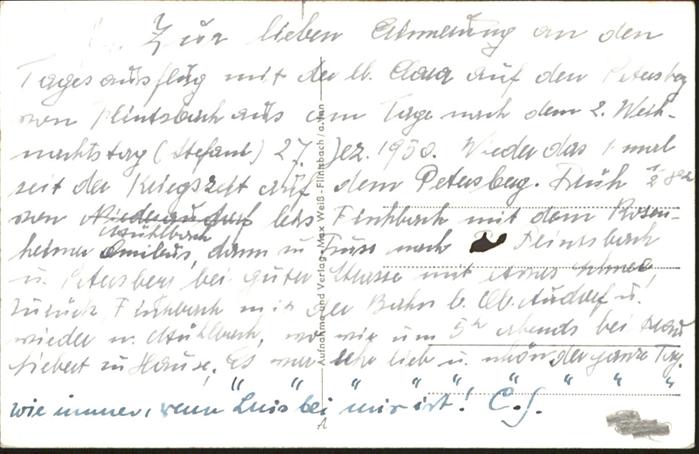 Zur lieben Erinnerung an den
Tagesausflug mit der lb. Clara auf den Petersberg
von Flintsbach aus am Tage nach dem 2. Weih-
nachtstag (Stefani) 27. Dez. 1950. Wieder das 1. mal
seit der Kriegszeit auf dem Petersberg. Früh 1/2 8 h
von Niederaudorf bis Fischbach mit dem Rosen-
Mühlbach
heimer Omnibus, dann zu Fuss nach Flintsbach
u. Petersberg, bei guter Strasse mit etwas Schnee,
zurück Fischbach mit der Bahn b. Ob. Audorf u.
wieder n. Mühlbach, wo wir um 5 h abends bei Frau
Siebert zu Hause. Es war sehr lieb u. schön der ganze Tag.
" " " " " " " "
wie immer, wenn Luis bei mir ist! C. S.
Aufnahme und Verlag Max Weiß - Flintsbach / a. Inn